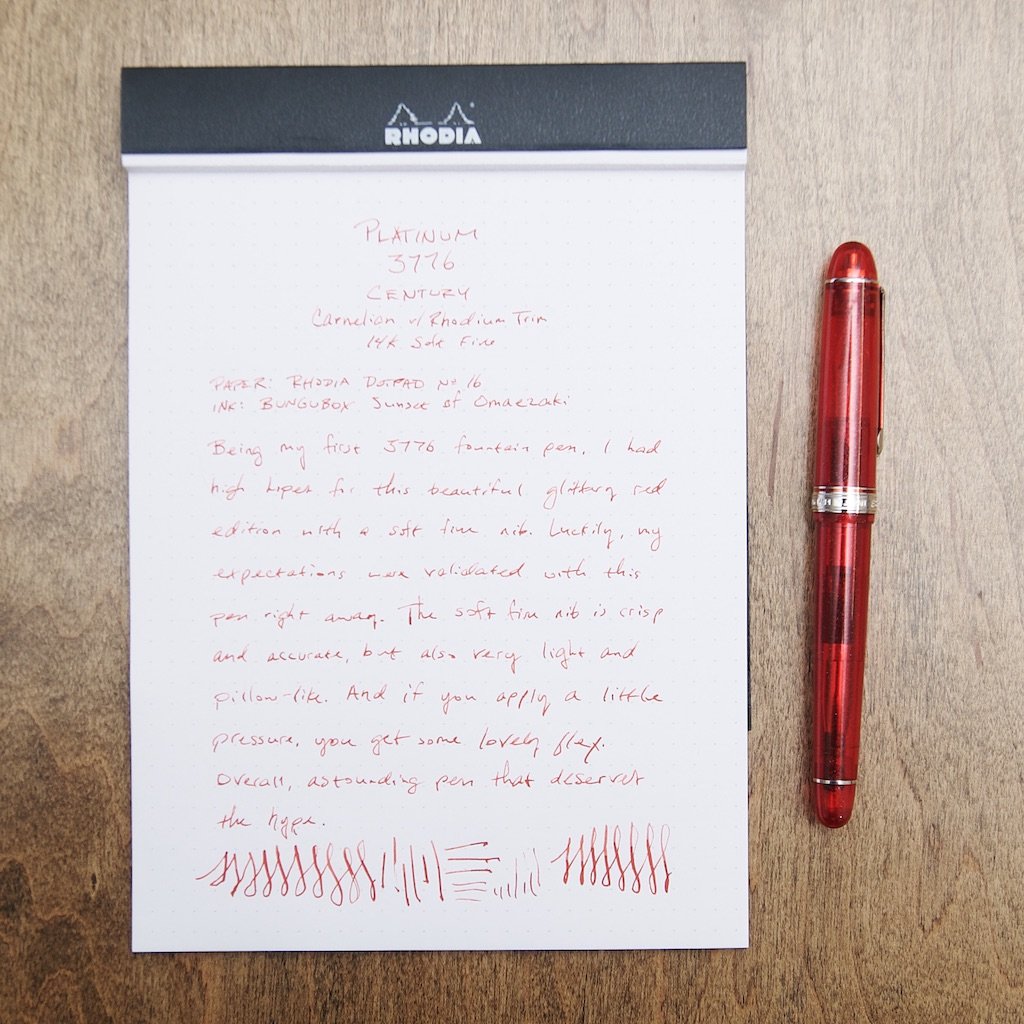 RHODIA
PLATINUM
3776
CENTURY
Carnelian w/Rhodium Trim
14k Soft Fine
PAPER: RHODIA DOTPAD No 16
INK: BUNGUBOX Sunset of Omaezaki
Being my first 3776 fountain pen, I had
high hopes for this beautiful glittery red
edition with a soft fine nib. Luckily, my
expectations were validated with this
pen right away. The soft fine nib is crisp
and accurate, but also very light and
pillow-like. And if you apply a little
pressure, you get some lovely flex.
Overall, astounding pen that deserves
the hype.